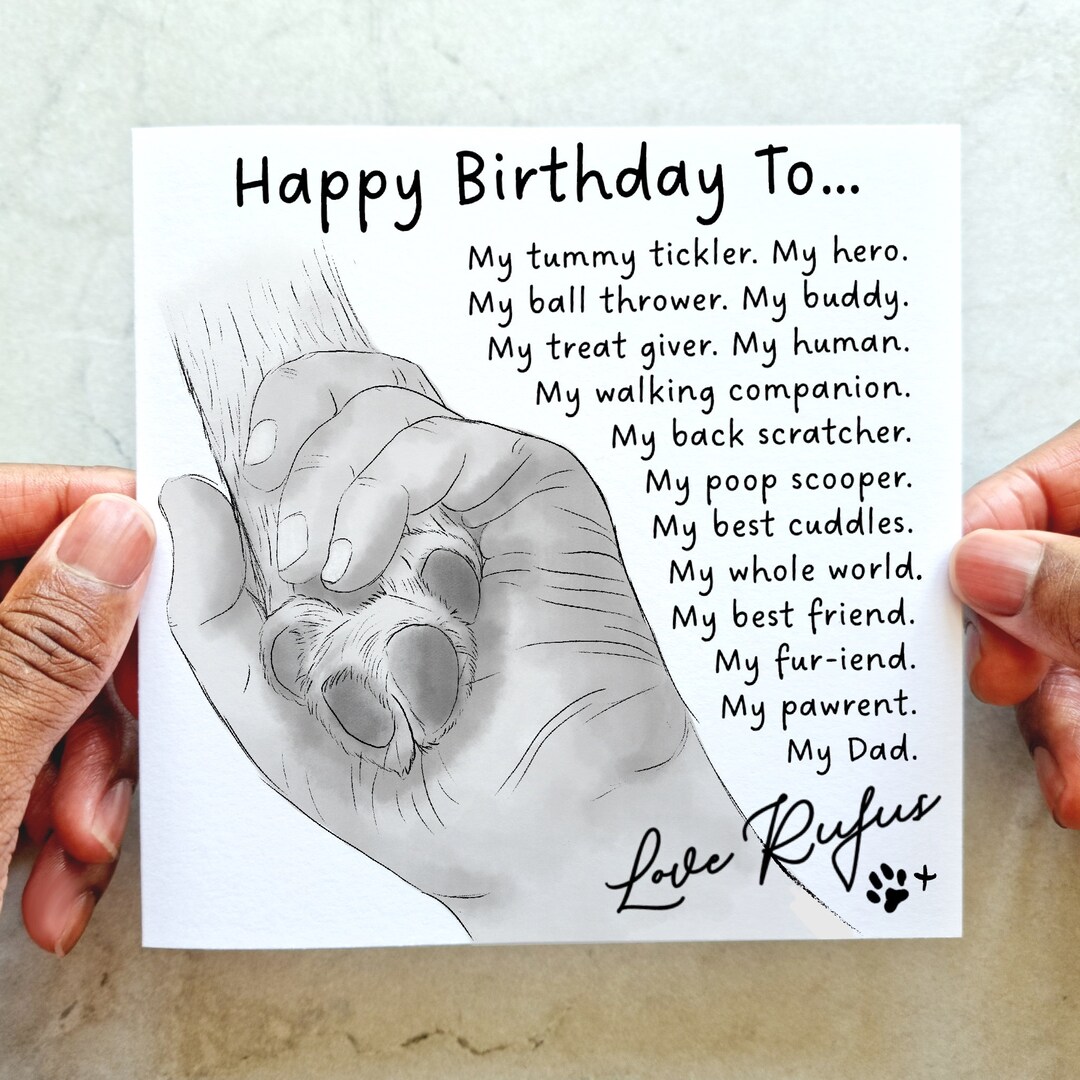 Happy Birthday To...
My tummy tickler. My hero.
My ball thrower. My buddy.
My treat giver. My human.
My walking companion.
My back scratcher.
My poop scooper.
My best cuddles.
My whole world.
My best friend.
My fur-iend.
My pawrent.
My Dad.
Love Rufus
+